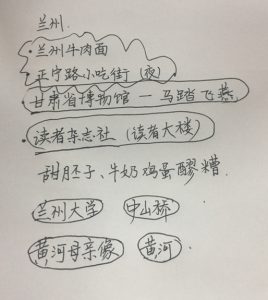 兰州.
·兰州牛肉面
正宁路小吃街(夜)
甘肃省博物馆 — 马踏飞燕.
·读者杂志社 (读者大楼)
甜胚子、牛奶鸡蛋醪糟.
兰州大学 中山桥
黄河母亲像 黄河